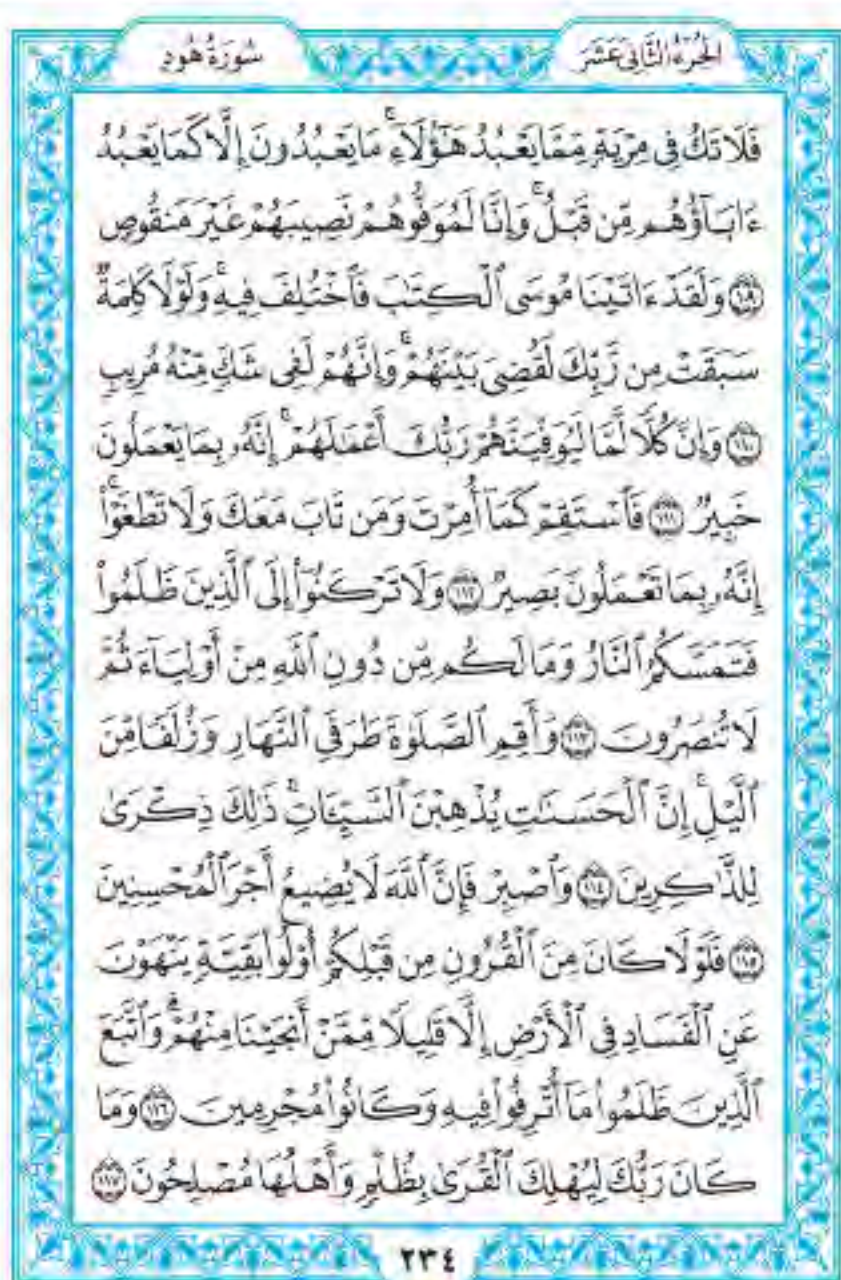 الجُزْءُ الثَّانِي عَشَرَ
سُورَةُ هُودٍ
فَلَا تَكُ فِي مِرْيَةٍ مِّمَّا يَعْبُدُ هَٰٓؤُلَآءِ ۚ مَا يَعْبُدُونَ إِلَّا كَمَا يَعْبُدُ
ءَابَآؤُهُم مِّن قَبْلُ ۚ وَإِنَّا لَمُوَفُّوهُمْ نَصِيبَهُمْ غَيْرَ مَنقُوصٍ
١٠٩ وَلَقَدْ ءَاتَيْنَا مُوسَى ٱلْكِتَٰبَ فَٱخْتُلِفَ فِيهِ ۚ وَلَوْلَا كَلِمَةٌ
سَبَقَتْ مِن رَّبِّكَ لَقُضِىَ بَيْنَهُمْ ۚ وَإِنَّهُمْ لَفِى شَكٍّ مِّنْهُ مُرِيبٍ
١١٠ وَإِنَّ كُلًّا لَّمَّا لَيُوَفِّيَنَّهُمْ رَبُّكَ أَعْمَٰلَهُمْ ۚ إِنَّهُۥ بِمَا يَعْمَلُونَ
خَبِيرٌ ١١١ فَٱسْتَقِمْ كَمَآ أُمِرْتَ وَمَن تَابَ مَعَكَ وَلَا تَطْغَوْا۟ ۚ
إِنَّهُۥ بِمَا تَعْمَلُونَ بَصِيرٌ ١١٢ وَلَا تَرْكَنُوٓا۟ إِلَى ٱلَّذِينَ ظَلَمُوا۟
فَتَمَسَّكُمُ ٱلنَّارُ وَمَا لَكُم مِّن دُونِ ٱللَّهِ مِنْ أَوْلِيَآءَ ثُمَّ
لَا تُنصَرُونَ ١١٣ وَأَقِمِ ٱلصَّلَوٰةَ طَرَفَىِ ٱلنَّهَارِ وَزُلَفًا مِّنَ
ٱلَّيْلِ ۚ إِنَّ ٱلْحَسَنَٰتِ يُذْهِبْنَ ٱلسَّيِّـَٔاتِ ۚ ذَٰلِكَ ذِكْرَىٰ
لِلذَّٰكِرِينَ ١١٤ وَٱصْبِرْ فَإِنَّ ٱللَّهَ لَا يُضِيعُ أَجْرَ ٱلْمُحْسِنِينَ
١١٥ فَلَوْلَا كَانَ مِنَ ٱلْقُرُونِ مِن قَبْلِكُمْ أُو۟لُوا۟ بَقِيَّةٍ يَنْهَوْنَ
عَنِ ٱلْفَسَادِ فِى ٱلْأَرْضِ إِلَّا قَلِيلًا مِّمَّنْ أَنجَيْنَا مِنْهُمْ ۗ وَٱتَّبَعَ
ٱلَّذِينَ ظَلَمُوا۟ مَآ أُتْرِفُوا۟ فِيهِ وَكَانُوا۟ مُجْرِمِينَ ١١٦ وَمَا
كَانَ رَبُّكَ لِيُهْلِكَ ٱلْقُرَىٰ بِظُلْمٍ وَأَهْلُهَا مُصْلِحُونَ ١١٧
٢٣٤